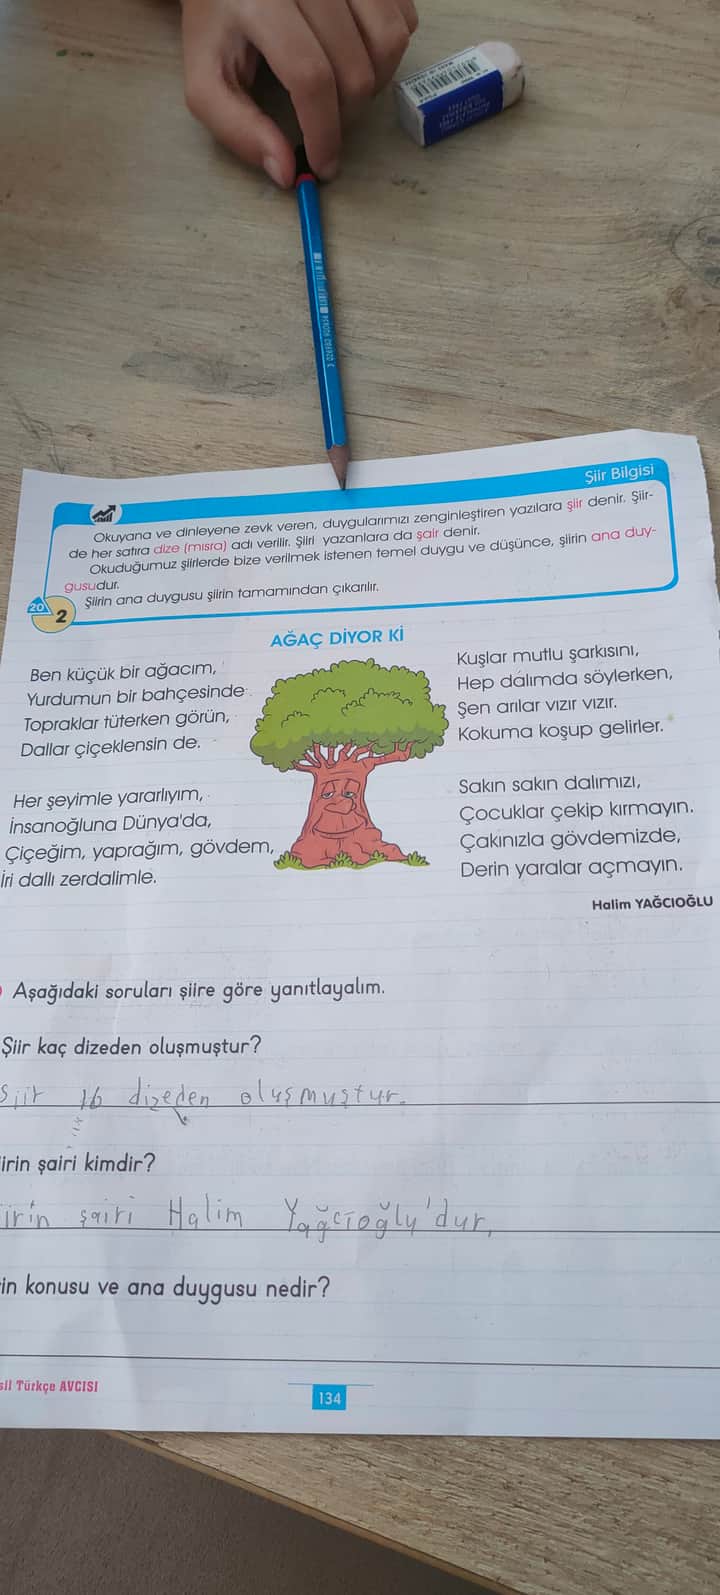 Şiir Bilgisi
Okuyana ve dinleyene zevk veren, duygularımızı zenginleştiren yazılara şiir denir. Şiir-
de her satıra dize (mısra) adı verilir. Şiiri yazanlara da şair denir.
Okuduğumuz şiirlerde bize verilmek istenen temel duygu ve düşünce, şiirin ana duy-
gusudur.
Şiirin ana duygusu şiirin tamamından çıkarılır.
20
2
AĞAÇ DİYOR Kİ
Ben küçük bir ağacım,
Yurdumun bir bahçesinde
Topraklar tüterken görün,
Dallar çiçeklensin de.
Her şeyimle yararlıyım,
İnsanoğluna Dünya'da,
Çiçeğim, yaprağım, gövdem,
İri dallı zerdalimle.
Kuşlar mutlu şarkısını,
Hep dalımda söylerken,
Şen arılar vızır vızır.
Kokuma koşup gelirler.
Sakın sakın dalımızı,
Çocuklar çekip kırmayın.
Çakınızla gövdemizde,
Derin yaralar açmayın.
Halim YAĞCIOĞLU
Aşağıdaki soruları şiire göre yanıtlayalım.
Şiir kaç dizeden oluşmuştur?
Şiir 16 dizeden oluşmuştur.
irin şairi kimdir?
irin şairi Halim Yağcıoğlu'dur.
in konusu ve ana duygusu nedir?
sil Türkçe AVCISI
134